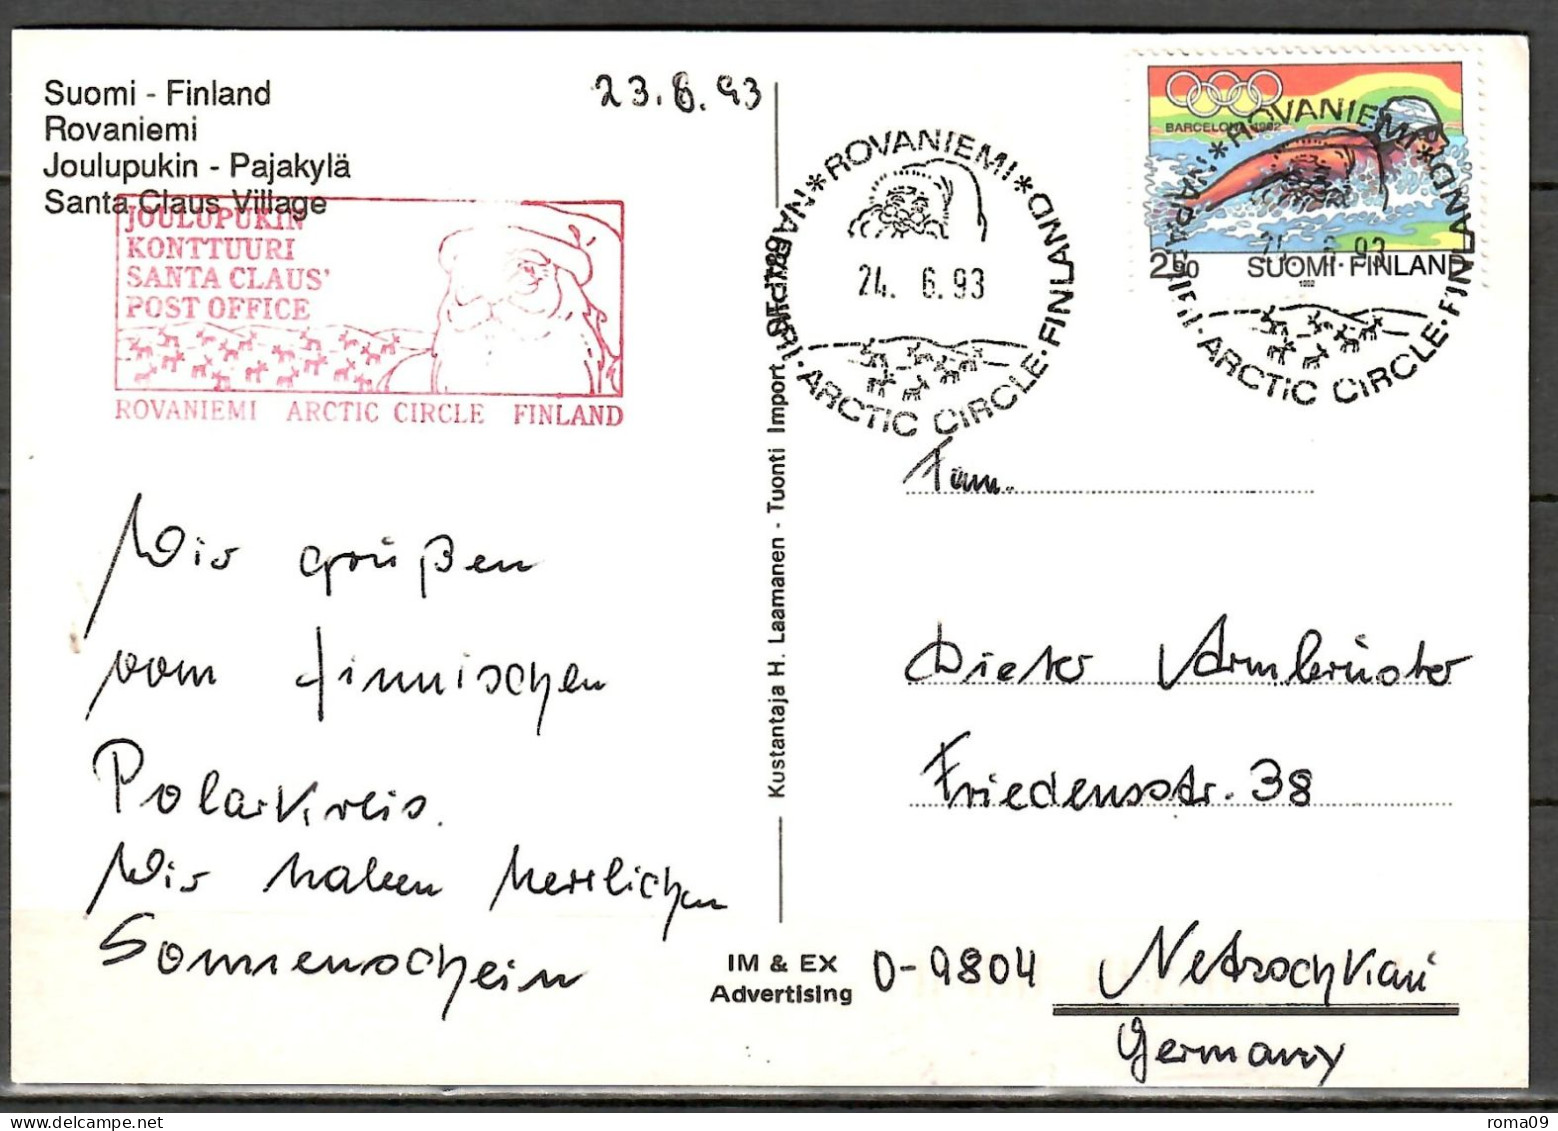 Suomi - Finland
Rovaniemi
Joulupukin - Pajakylä
Santa Claus Village
23.6.93
JOULUPUKIN
KONTTUURI
SANTA CLAUS'
POST OFFICE
ROVANIEMI ARCTIC CIRCLE FINLAND
Wir grüßen
vom finnischen
Polarkreis.
Wir haben herrlichen
Sonnenschein
Kustantaja H. Laamanen - Tuonti Import
IM & EX
Advertising
*ROVANIEMI*
NAPAPIIRI · ARCTIC CIRCLE · FINLAND
24. 6.93
BARCELONA 1992
2,50 SUOMI·FINLAND
1992
*ROVANIEMI*
NAPAPIIRI · ARCTIC CIRCLE · FINLAND
6.93
Fam.
Dieter Armbrüster
Friedensstr. 38
D-9804 Netzschkau
Germany
roma09